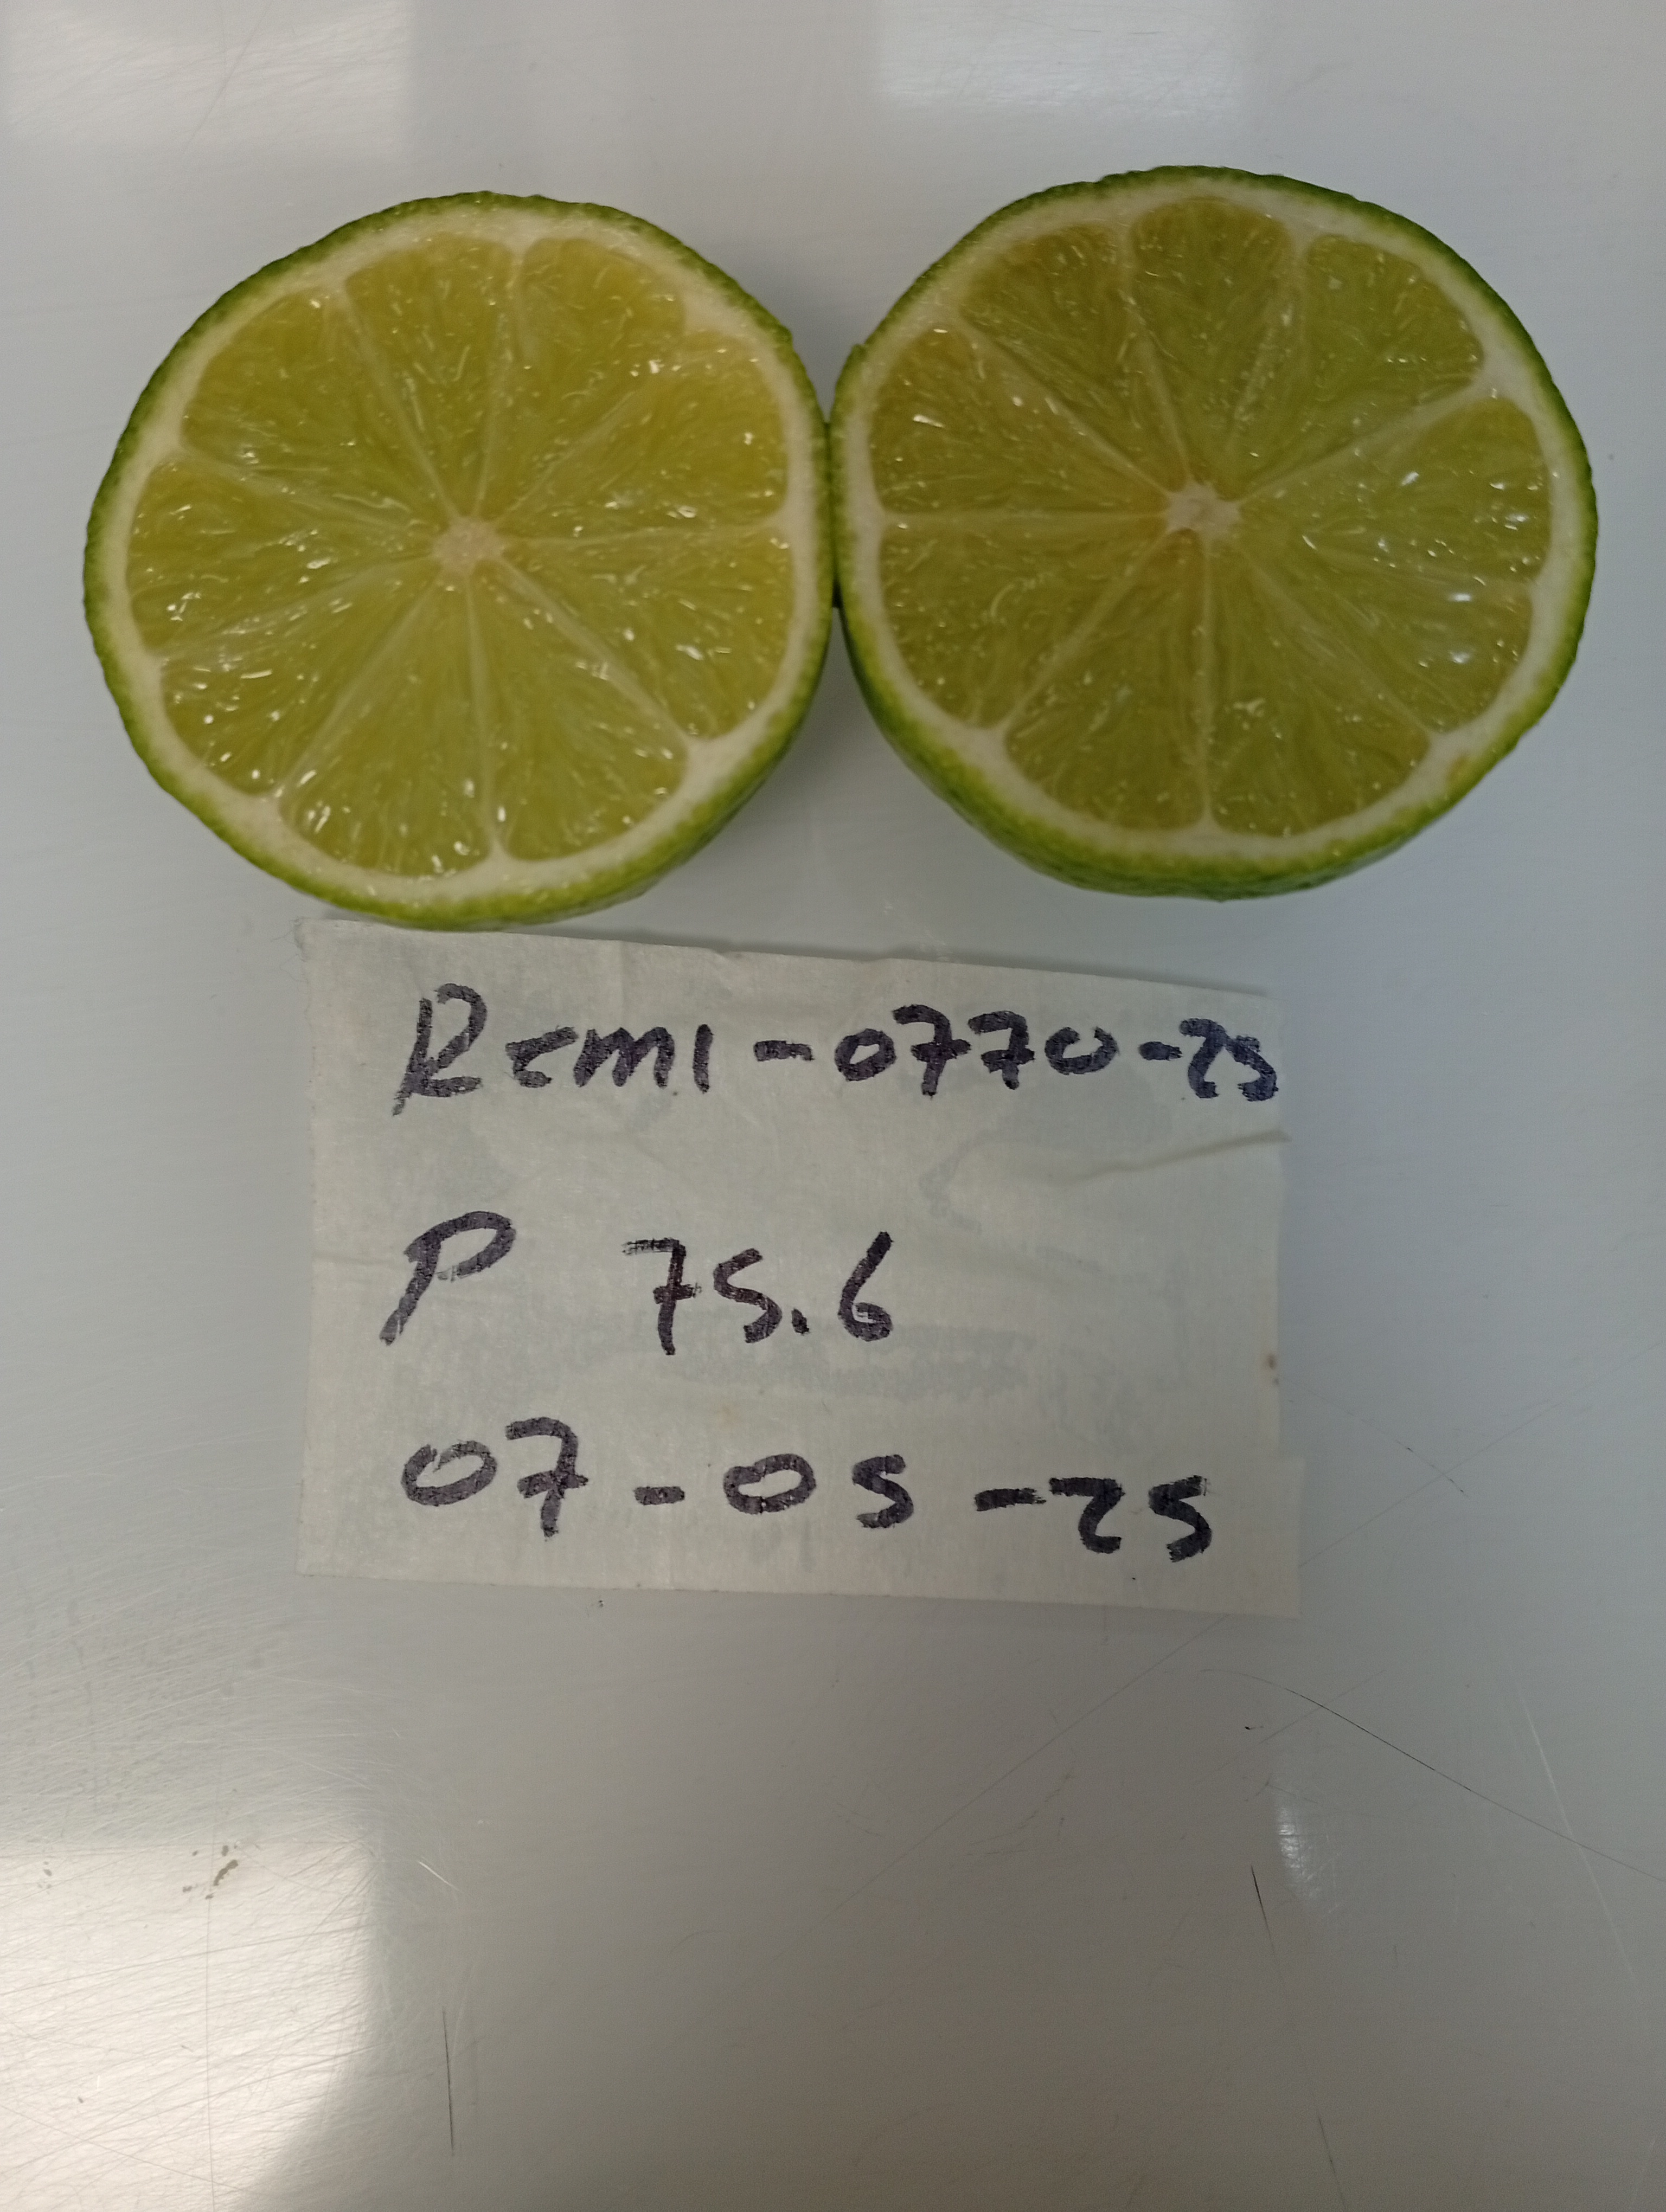 Remi-0770-25
P 75.6
07-05-25